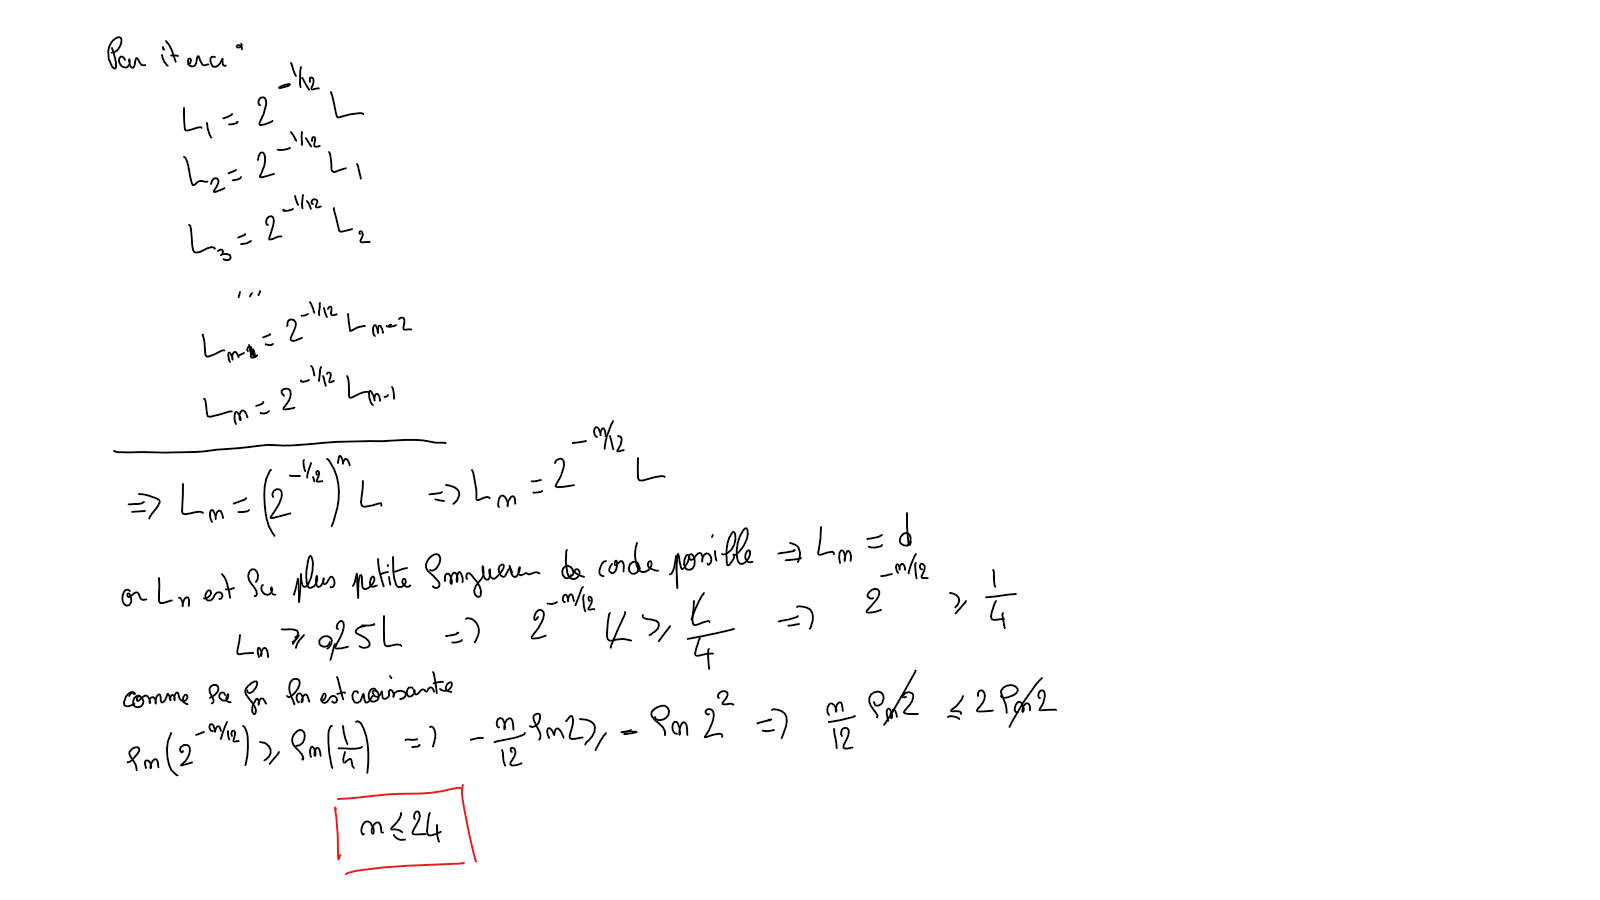 Par itera°
L₁ = 2^(-1/12) L
L₂ = 2^(-1/12) L₁
L₃ = 2^(-1/12) L₂
...
L_(n-1) = 2^(-1/12) L_(n-2)
L_n = 2^(-1/12) L_(n-1)
=> L_n = (2^(-1/12))^n L => L_n = 2^(-n/12) L
or L_n est la plus petite longueur de corde possible => L_n = d
L_n ⩾ 0,25L => 2^(-n/12) L ⩾ L/4 => 2^(-n/12) ⩾ 1/4
comme la fn ln est croissante
ln(2^(-n/12)) ⩾ ln(1/4) => -n/12 ln2 ⩾ - ln 2² => n/12 ln2 ⩽ 2 ln2
n ⩽ 24